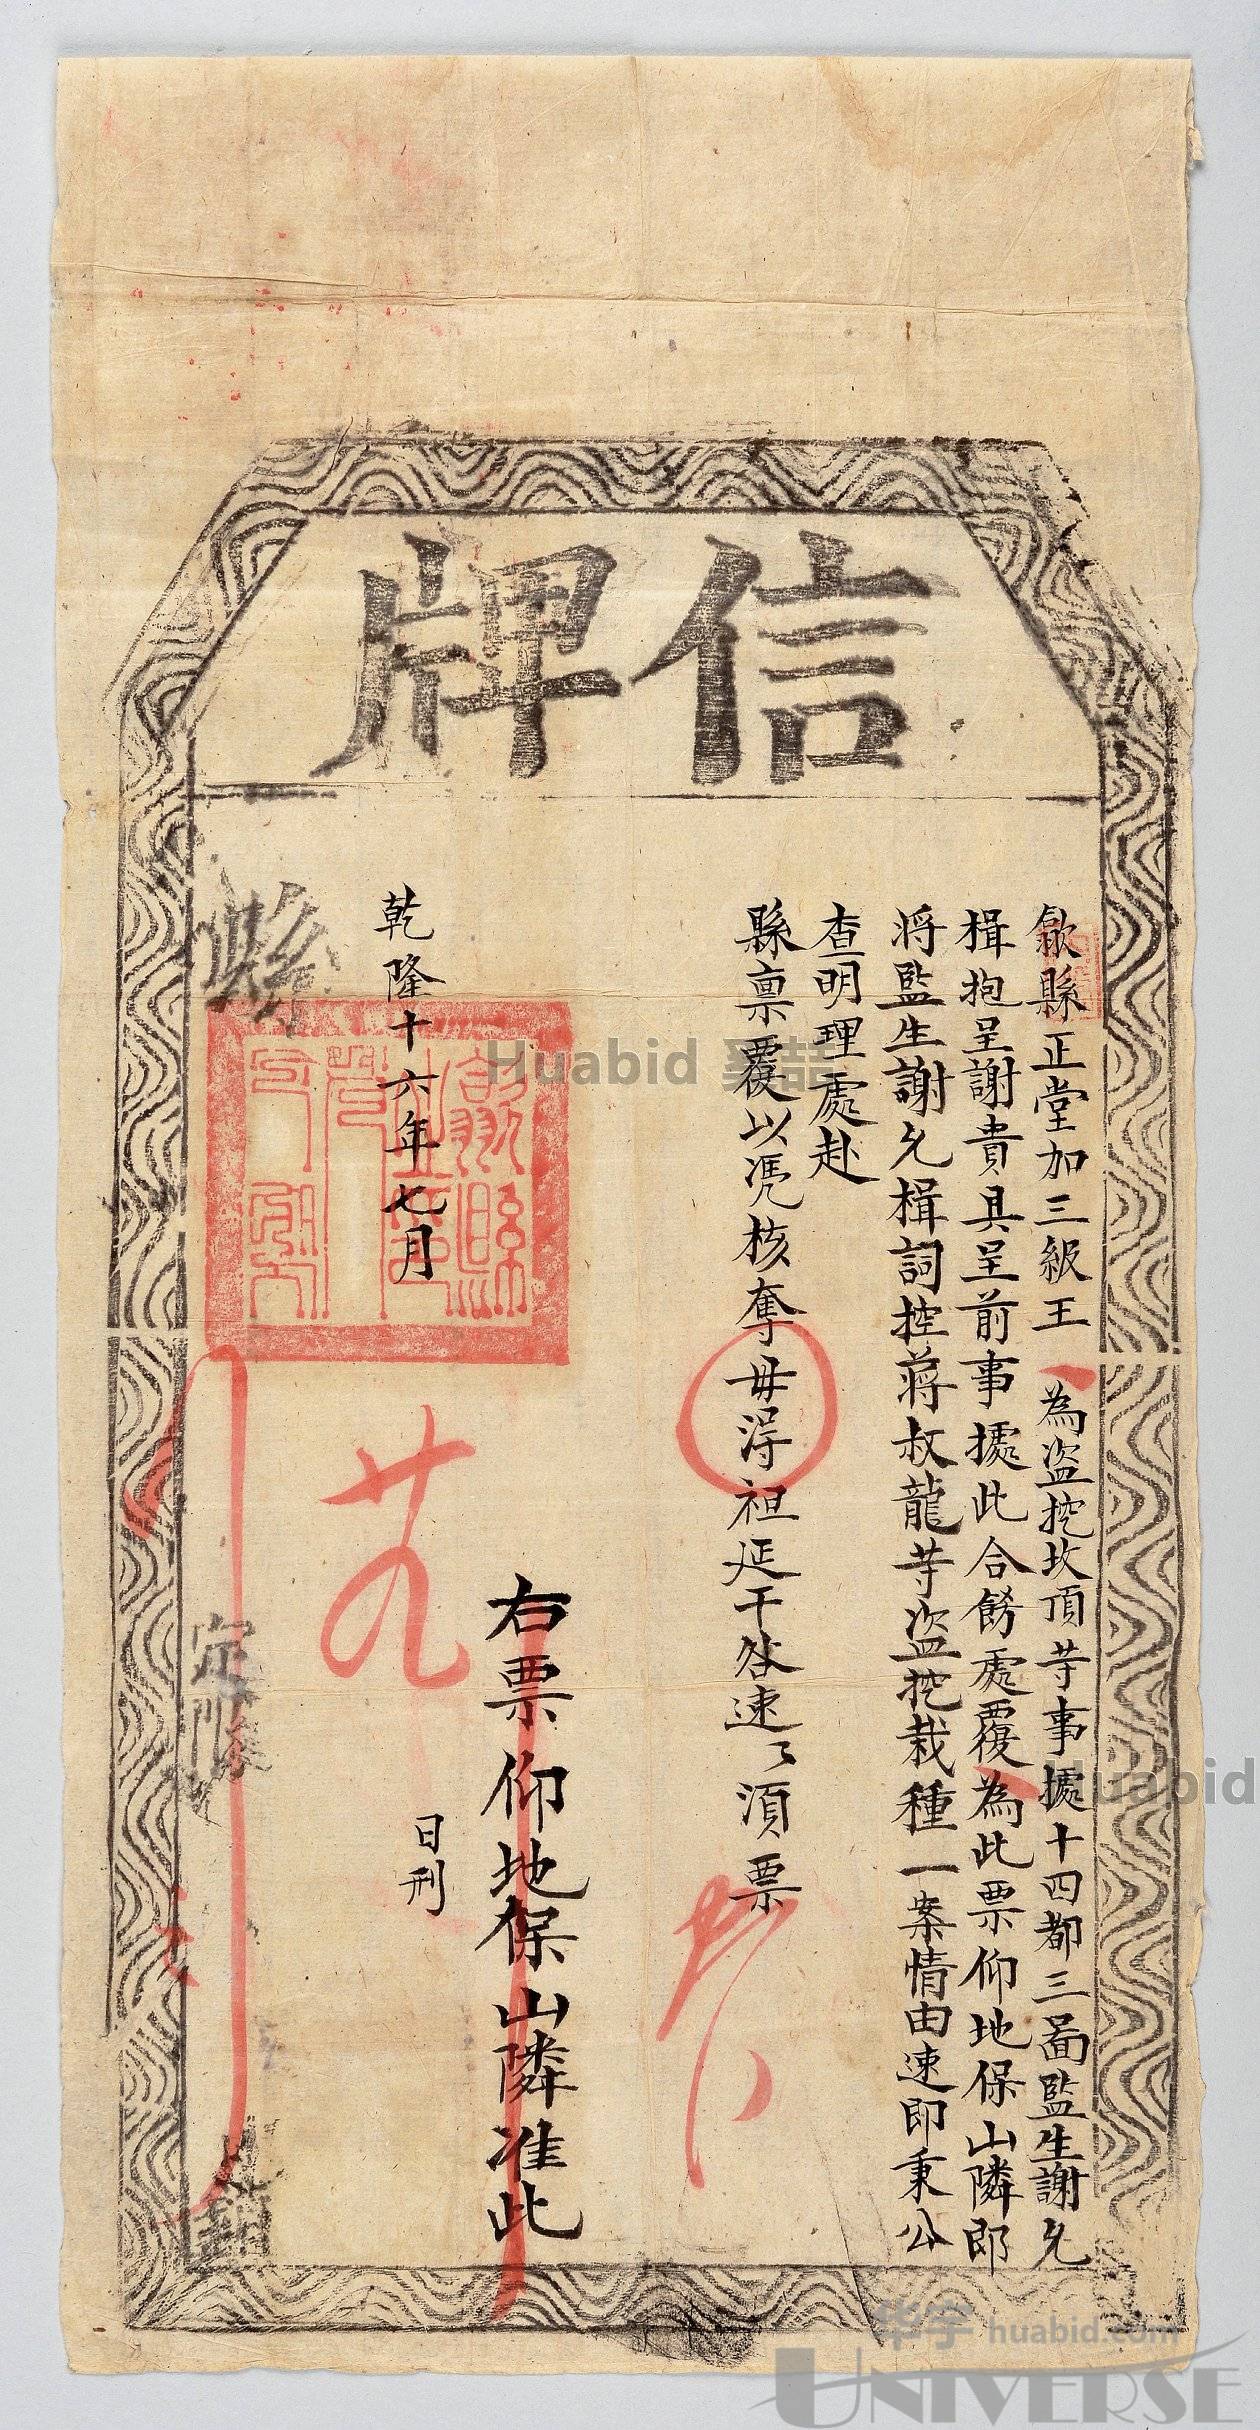 信牌
歙縣正堂加三級王 為盜挖坎頂䓁事據十四都三啚監生謝允
楫抱呈謝貴具呈前事據此合飭處覆為此票仰地保山隣即
将監生謝允楫詞控蔣叔龍䓁盜挖栽種一案情由速即秉公
查明理處赴
縣禀覆以凴核奪毋淂袒延干咎速々湏票
右票仰地保山隣准此
乾隆十六年七月 日刑
縣
定限 銷
Huabid
Huabid
华宇 huabid.com
UNIVERSE